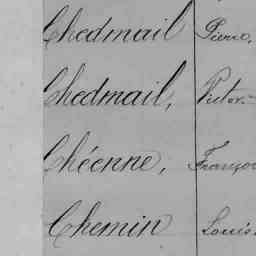 Chedmail Pierre,
Chedmail, Victor.
Chéenne, Françoi
Chemin Louis.